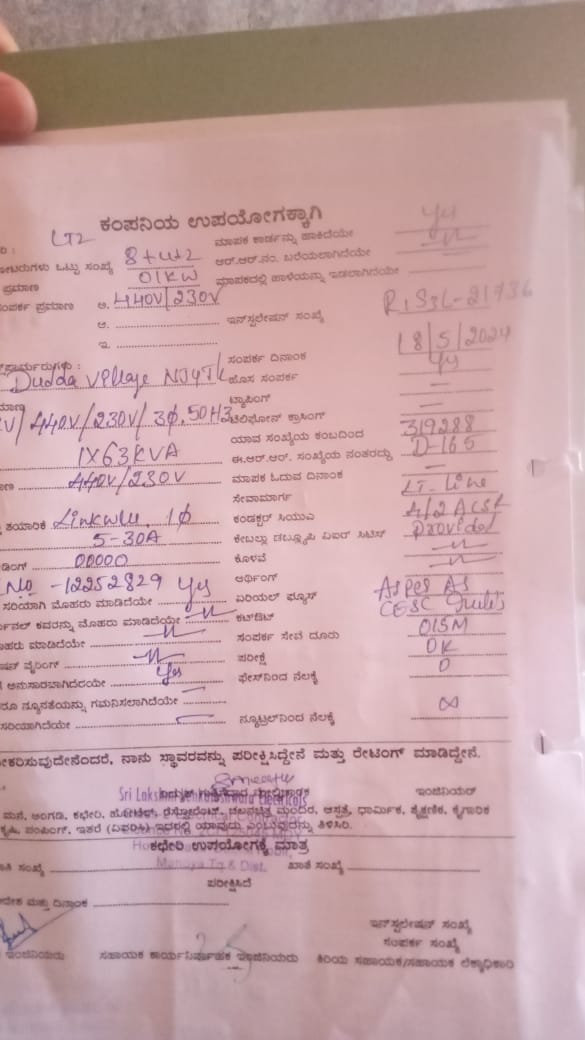 LT2
ಕಂಪನಿಯ ಉಪಯೋಗಕ್ಕಾಗಿ
ಒಟ್ಟು ಸಂಖ್ಯೆ 8+4+2 ಮಾಪಕ ಕಾರ್ಡನ್ನು ಹಾಕಿದೆಯೇ yes
ಪ್ರಮಾಣ 01KW ಆರ್.ಆರ್.ನಂ. ಬರೆಯಲಾಗಿದೆಯೇ
ಪ್ರಮಾಣ ಅ. 440V/230V ಮಾಪಕದಲ್ಲಿ ಹಾಳೆಯನ್ನು ಇಡಲಾಗಿದೆಯೇ
ಆ. ಇನ್‌ಸ್ಟಲೇಷನ್ ಸಂಖ್ಯೆ
ಇ.
ಸಂಪರ್ಕ ದಿನಾಂಕ 18/5/2024
Dudda Village ಹೊಸ ಸಂಪರ್ಕ yes
ಟ್ಯಾಪಿಂಗ್ —
/440V/230V/3Φ.50HZ ಟೆಲಿಫೋನ್ ಕ್ರಾಸಿಂಗ್ —
1X63KVA ಯಾವ ಸಂಖ್ಯೆಯ ಕಂಬದಿಂದ 319288
ಈ.ಆರ್.ಆರ್. ಸಂಖ್ಯೆಯ ನಂತರದ್ದು D-165
440V/230V ಮಾಪಕ ಓದುವ ದಿನಾಂಕ —
ಸೇವಾಮಾರ್ಗ LT-Line
Linkwell, 1Φ ಕಂಡಕ್ಟರ್ ಸಿಯುಎ 4/2 ACSR
5-30A Provided
00000 ಕೊಳವೆ
No -12252829 yes ಅರ್ಥಿಂಗ್
ಸರಿಯಾಗಿ ಮೊಹರು ಮಾಡಿದೆಯೇ ಏರಿಯಲ್ ಫ್ಯೂಸ್ As per As
ಕವರನ್ನು ಮೊಹರು ಮಾಡಿದೆಯೇ ಕಟ್‌ಔಟ್ CESC Rules
ಮಾಡಿದೆಯೇ ಸಂಪರ್ಕ ಸೇವೆ ದೂರ 015M
ವೈರಿಂಗ್ ಪರೀಕ್ಷೆ OK
ಅನುಸಾರವಾಗಿದೆಯೇ yes ಫೇಸ್‌ನಿಂದ ನೆಲಕ್ಕೆ 0
ನ್ಯೂನತೆಯನ್ನು ಗಮನಿಸಲಾಗಿದೆಯೇ —
ಸರಿಯಾಗಿದೆಯೇ ನ್ಯೂಟ್ರಲ್‌ನಿಂದ ನೆಲಕ್ಕೆ ∞
ನಾನು ಸ್ಥಾವರವನ್ನು ಪರೀಕ್ಷಿಸಿದ್ದೇನೆ ಮತ್ತು ರೇಟಿಂಗ್ ಮಾಡಿದ್ದೇನೆ.
ಇಂಜಿನಿಯರ್
ಮನೆ, ಅಂಗಡಿ, ಕಛೇರಿ, ಹೋಟೆಲ್, ರೆಸ್ಟೋರೆಂಟ್, ಚಲನಚಿತ್ರ ಮಂದಿರ, ಆಸ್ಪತ್ರೆ, ಧಾರ್ಮಿಕ, ಶೈಕ್ಷಣಿಕ, ಕೈಗಾರಿಕ
ಕೃಷಿ, ಪಂಪಿಂಗ್, ಇತರೆ ಇದರಲ್ಲಿ ಯಾವುದು ಎಂಬುವುದನ್ನು ತಿಳಿಸಿರಿ.
ಕಛೇರಿ ಉಪಯೋಗಕ್ಕೆ ಮಾತ್ರ
Mandya Tq & Dist.
ಸಂಖ್ಯೆ ಖಾತೆ ಸಂಖ್ಯೆ
ಪರೀಕ್ಷಿಸಿದೆ
ಮತ್ತು ದಿನಾಂಕ
ಇನ್‌ಸ್ಟಲೇಷನ್ ಸಂಖ್ಯೆ
ಸಂಪರ್ಕ ಸಂಖ್ಯೆ
ಇಂಜಿನಿಯರು ಸಹಾಯಕ ಕಾರ್ಯನಿರ್ವಾಹಕ ಇಂಜಿನಿಯರು ಕಿರಿಯ ಸಹಾಯಕ/ಸಹಾಯಕ ಲೆಕ್ಕಾಧಿಕಾರಿ